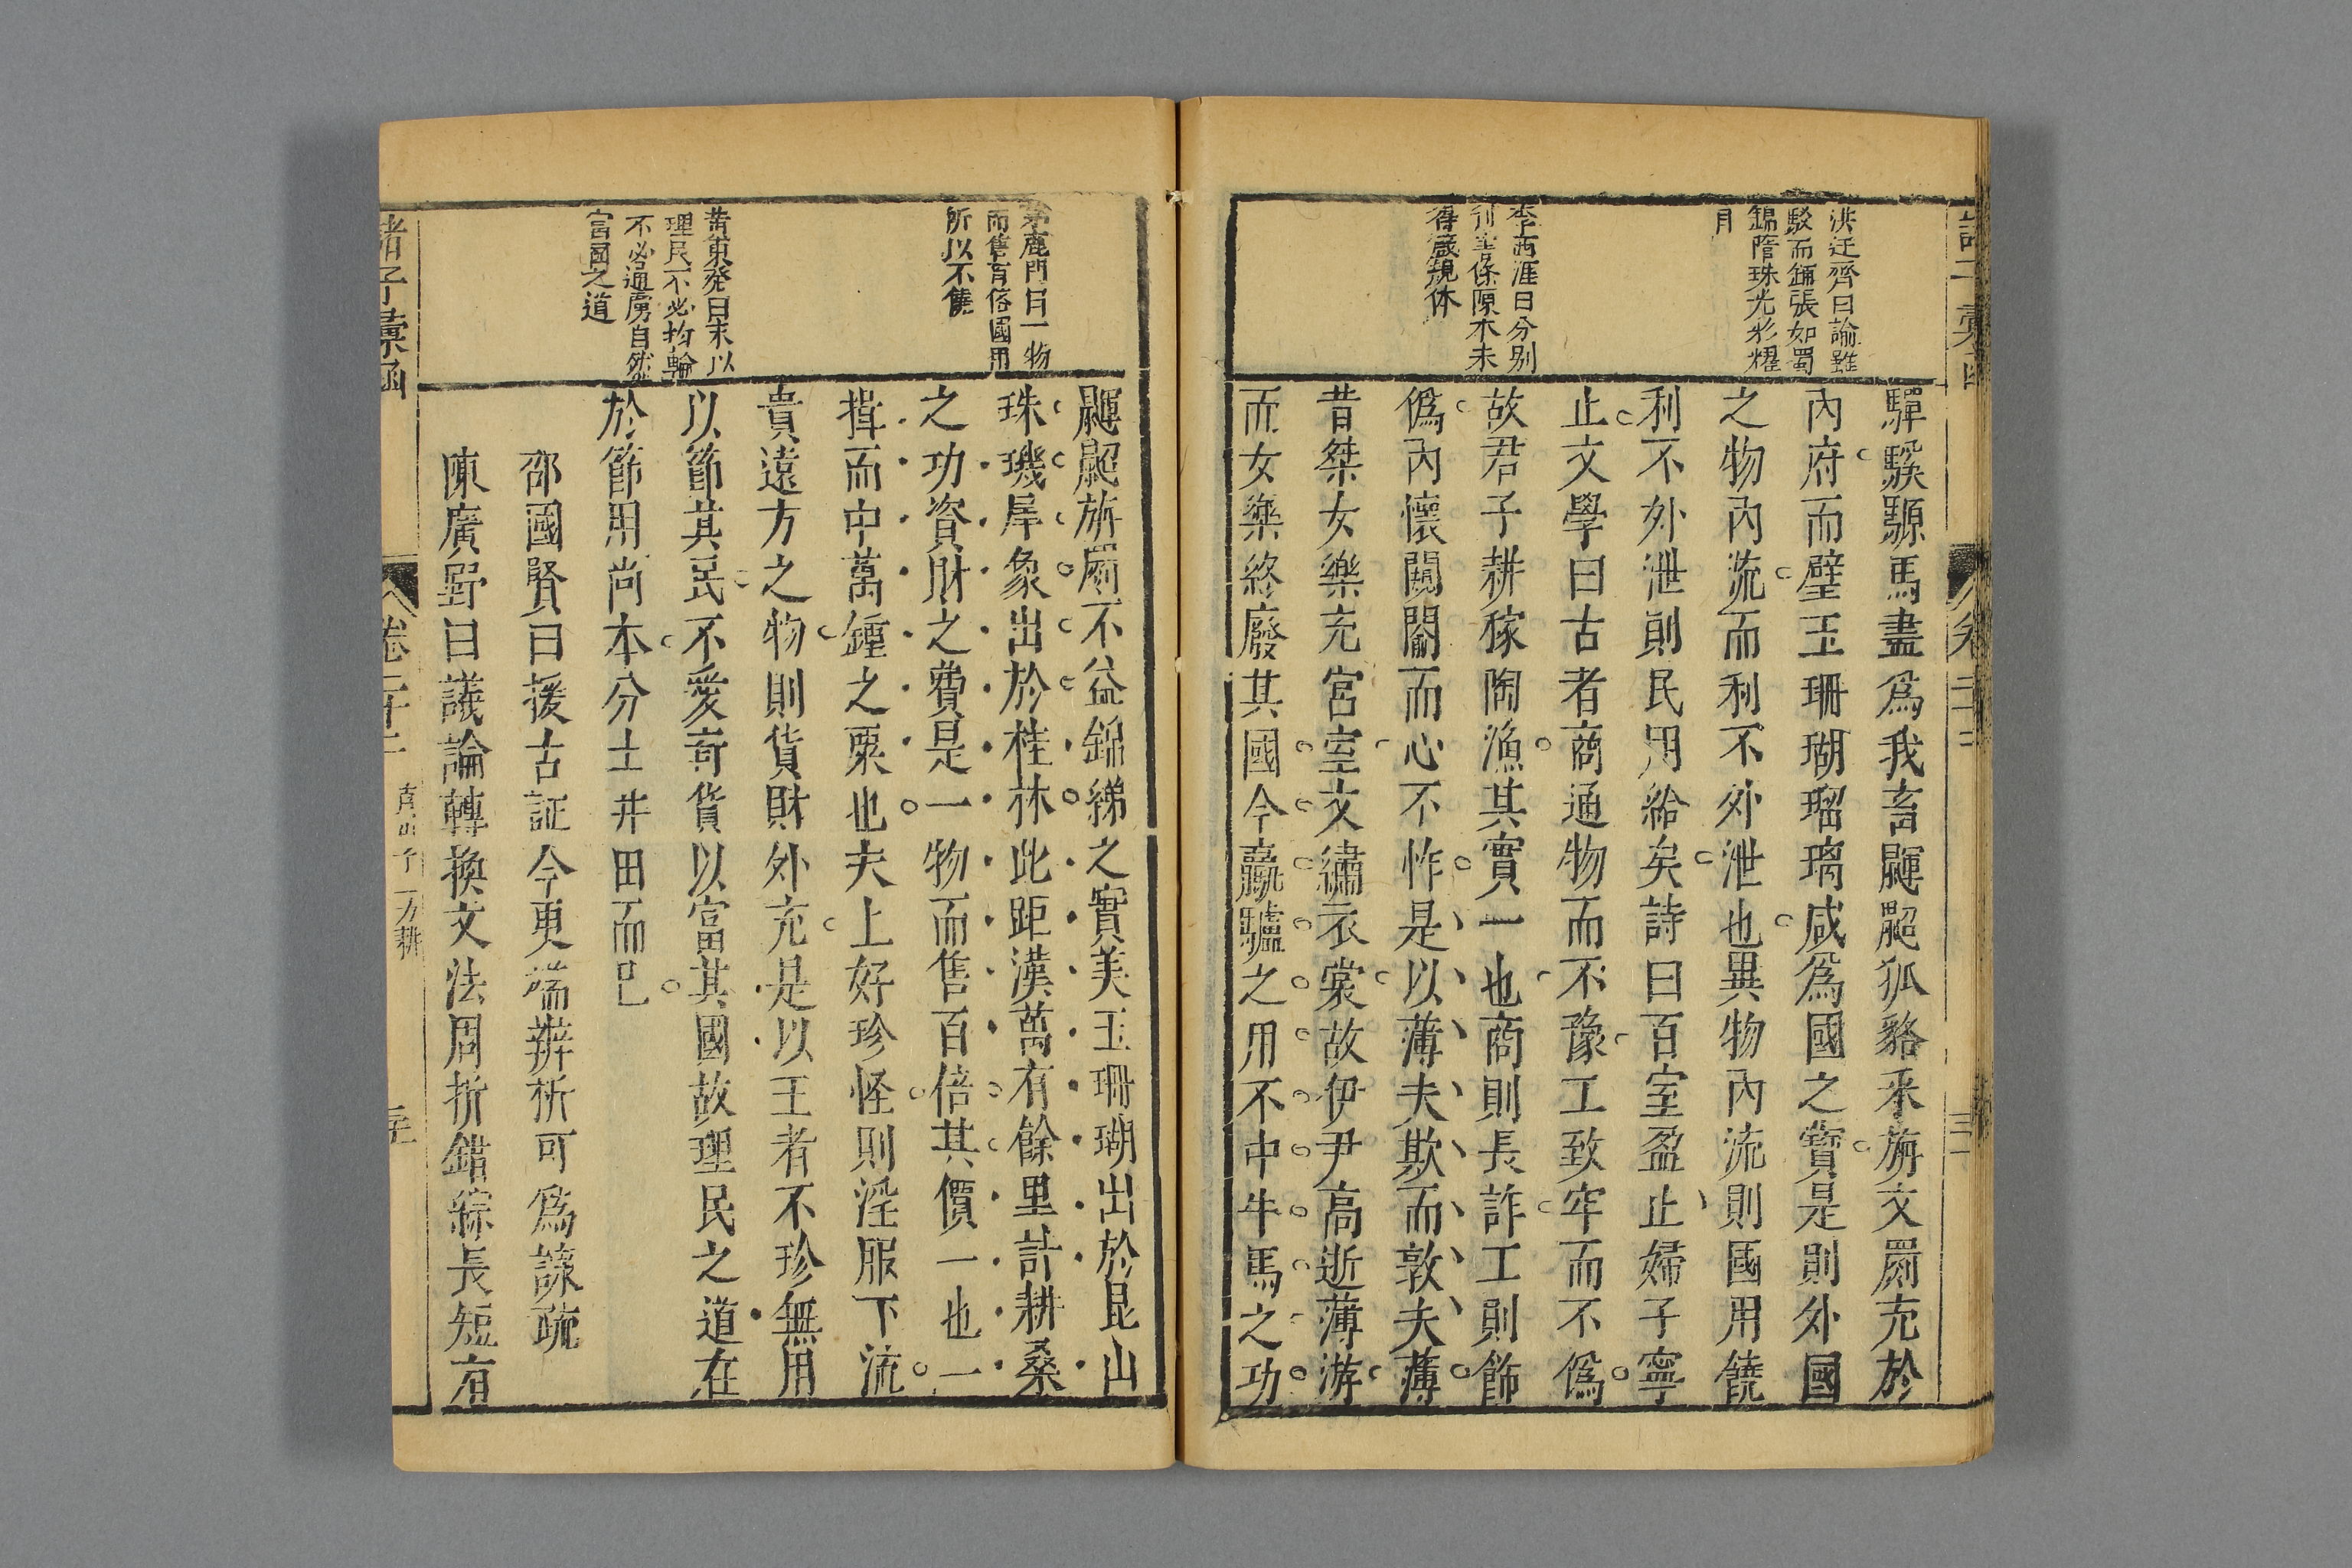 洪迂齊曰諭雖
駁而鋪張如蜀
錦隋珠光彩耀
目
李西涯曰分別
利害條原本未
得箴規休
驒騱騵馬盡爲我畜鼲鼦狐貉釆旃文罽充於
內府而璧玉珊瑚瑠璃咸爲國之寶是則外國
之物內流而利不外泄也異物內流則國用饒
利不外泄則民用給矣詩曰百室盈止婦子寧
止文學曰古者商通物而不豫工致牢而不僞
故君子耕稼陶漁其實一也商則長詐工則飾
僞內懷闚闟而心不怍是以薄夫欺而敦夫薄
昔桀女樂充宮室文繡衣裳故伊尹高逝薄游
而女樂終廢其國今驘驢之用不中牛馬之功
茅鹿門曰一物
而售有俗國用
所以不饒
黃東發曰末以
理民不必均輸
不必通虜自然
富國之道
鼲鼦旃罽不益錦綈之實美玉珊瑚出於昆山
珠璣犀象出於桂林此距漢萬有餘里計耕桑
之功資財之費是一物而售百倍其價一也一
揖而中萬鍾之粟也夫上好珍怪則淫服下流
貴遠方之物則貨財外充是以王者不珍無用
以節其民不愛奇貨以富其國故理民之道在
於節用尚本分土井田而已
邵國賢曰援古証今更端辨析可爲諒疏
陳廣野曰議論轉換文法周折錯綜長短有
諸子彙函
卷二十二